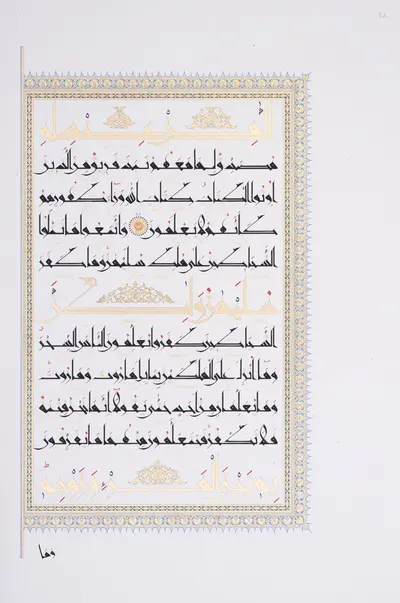 من عند الله
مصدق لما معهم نبذ فريق من الذين
اوتوا الكتاب كتاب الله وراء ظهورهم
كانهم لا يعلمون واتبعوا ما تتلوا
الشياطين على ملك سليمن وما كفر
سليمن ولكن
الشياطين كفروا يعلمون الناس السحر
وما انزل على الملكين ببابل هاروت وماروت
وما يعلمان من احد حتى يقولا انما نحن فتنة
فلا تكفر فيتعلمون منهما ما يفرقون
به بين المرء وزوجه
وما